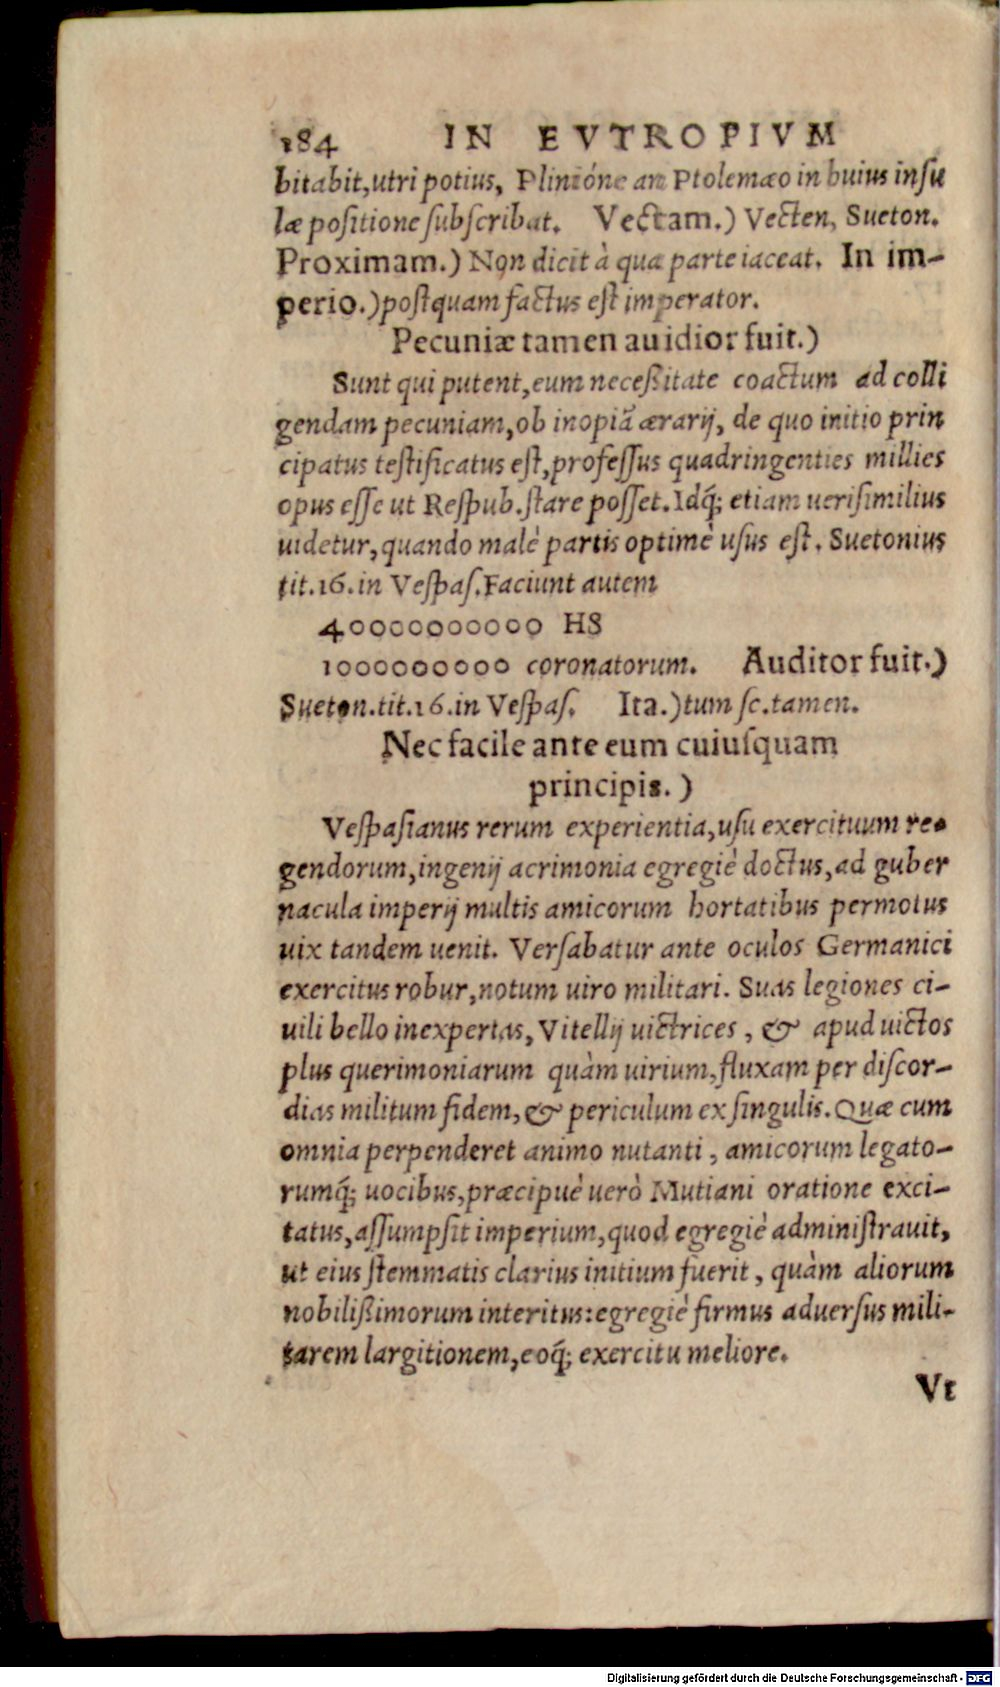 184 IN EVTROPIVM
bitabit, utri potius, Plinióne an Ptolemæo in huius insu
læ positione subscribat. Vectam.) Vecten, Sueton.
Proximam.) Non dicit à qua parte iaceat. In im-
perio.) postquam factus est imperator.
Pecuniæ tamen auidior fuit.)
Sunt qui putent, eum neceßitate coactum ad colli
gendam pecuniam, ob inopiā ærarij, de quo initio prin
cipatus testificatus est, professus quadringenties millies
opus esse ut Respub. stare posset. Idq́; etiam uerisimilius
uidetur, quando malè partis optimè usus est. Suetonius
tit. 16. in Vespas. Faciunt autem
40000000000 HS
1000000000 coronatorum. Auditor fuit.)
Sueton. tit. 16. in Vespas. Ita.) tum sc. tamen.
Nec facile ante eum cuiusquam
principis.)
Vespasianus rerum experientia, usu exercituum re-
gendorum, ingenij acrimonia egregiè doctus, ad guber
nacula imperij multis amicorum hortatibus permotus
uix tandem uenit. Versabatur ante oculos Germanici
exercitus robur, notum uiro militari. Suas legiones ci-
uili bello inexpertas, Vitellij uictrices, & apud uictos
plus querimoniarum quàm uirium, fluxam per discor-
dias militum fidem, & periculum ex singulis. Quæ cum
omnia perpenderet animo nutanti, amicorum legato-
rumq́; uocibus, præcipuè uerò Mutiani oratione exci-
tatus, assumpsit imperium, quod egregiè administrauit,
ut eius stemmatis clarius initium fuerit, quàm aliorum
nobilißimorum interitus: egregiè firmus aduersus mili-
tarem largitionem, eoq́; exercitu meliore.
Vt
Digitalisierung gefördert durch die Deutsche Forschungsgemeinschaft - DFG